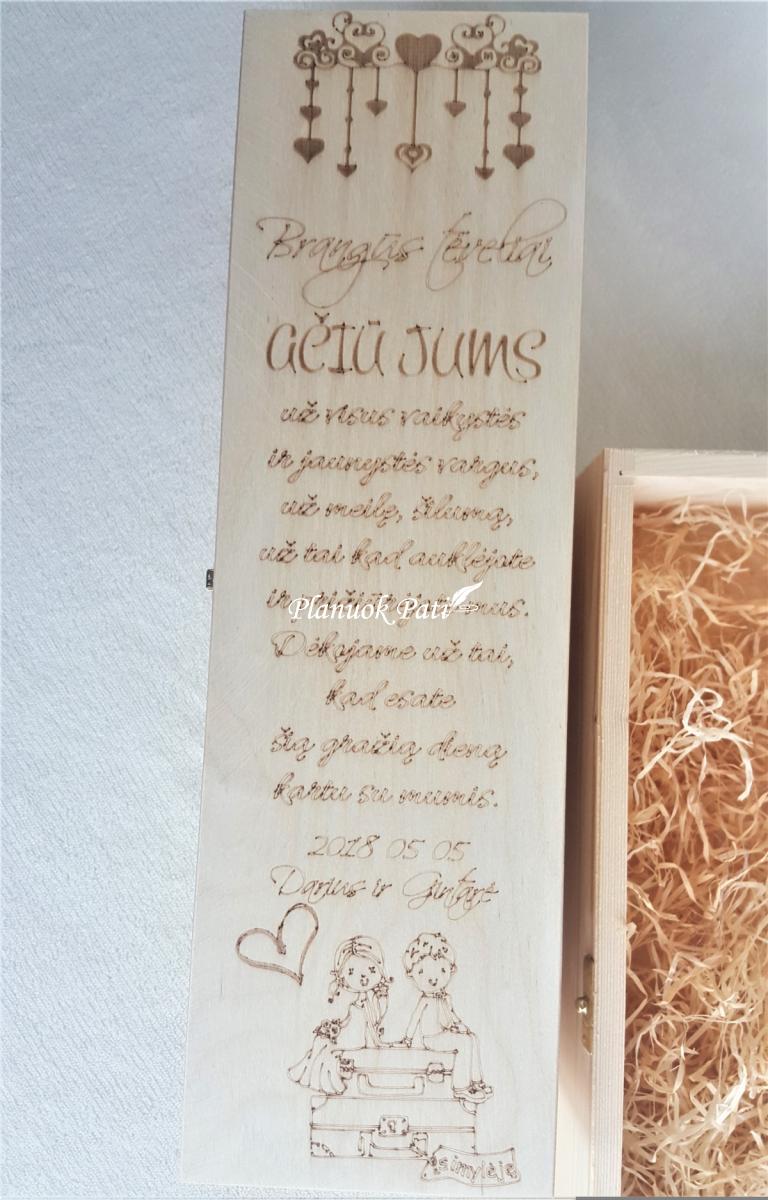 Brangūs tėveliai
AČIŪ JUMS
už visus vaikystės
ir jaunystės vargus,
už meilę, šilumą,
už tai kad auklėjote
ir mus.
Planuok Pati
Dėkojame už tai,
kad esate
šią gražią dieną
kartu su mumis.
2018 05 05
Darius ir Gintarė
įsimylėję